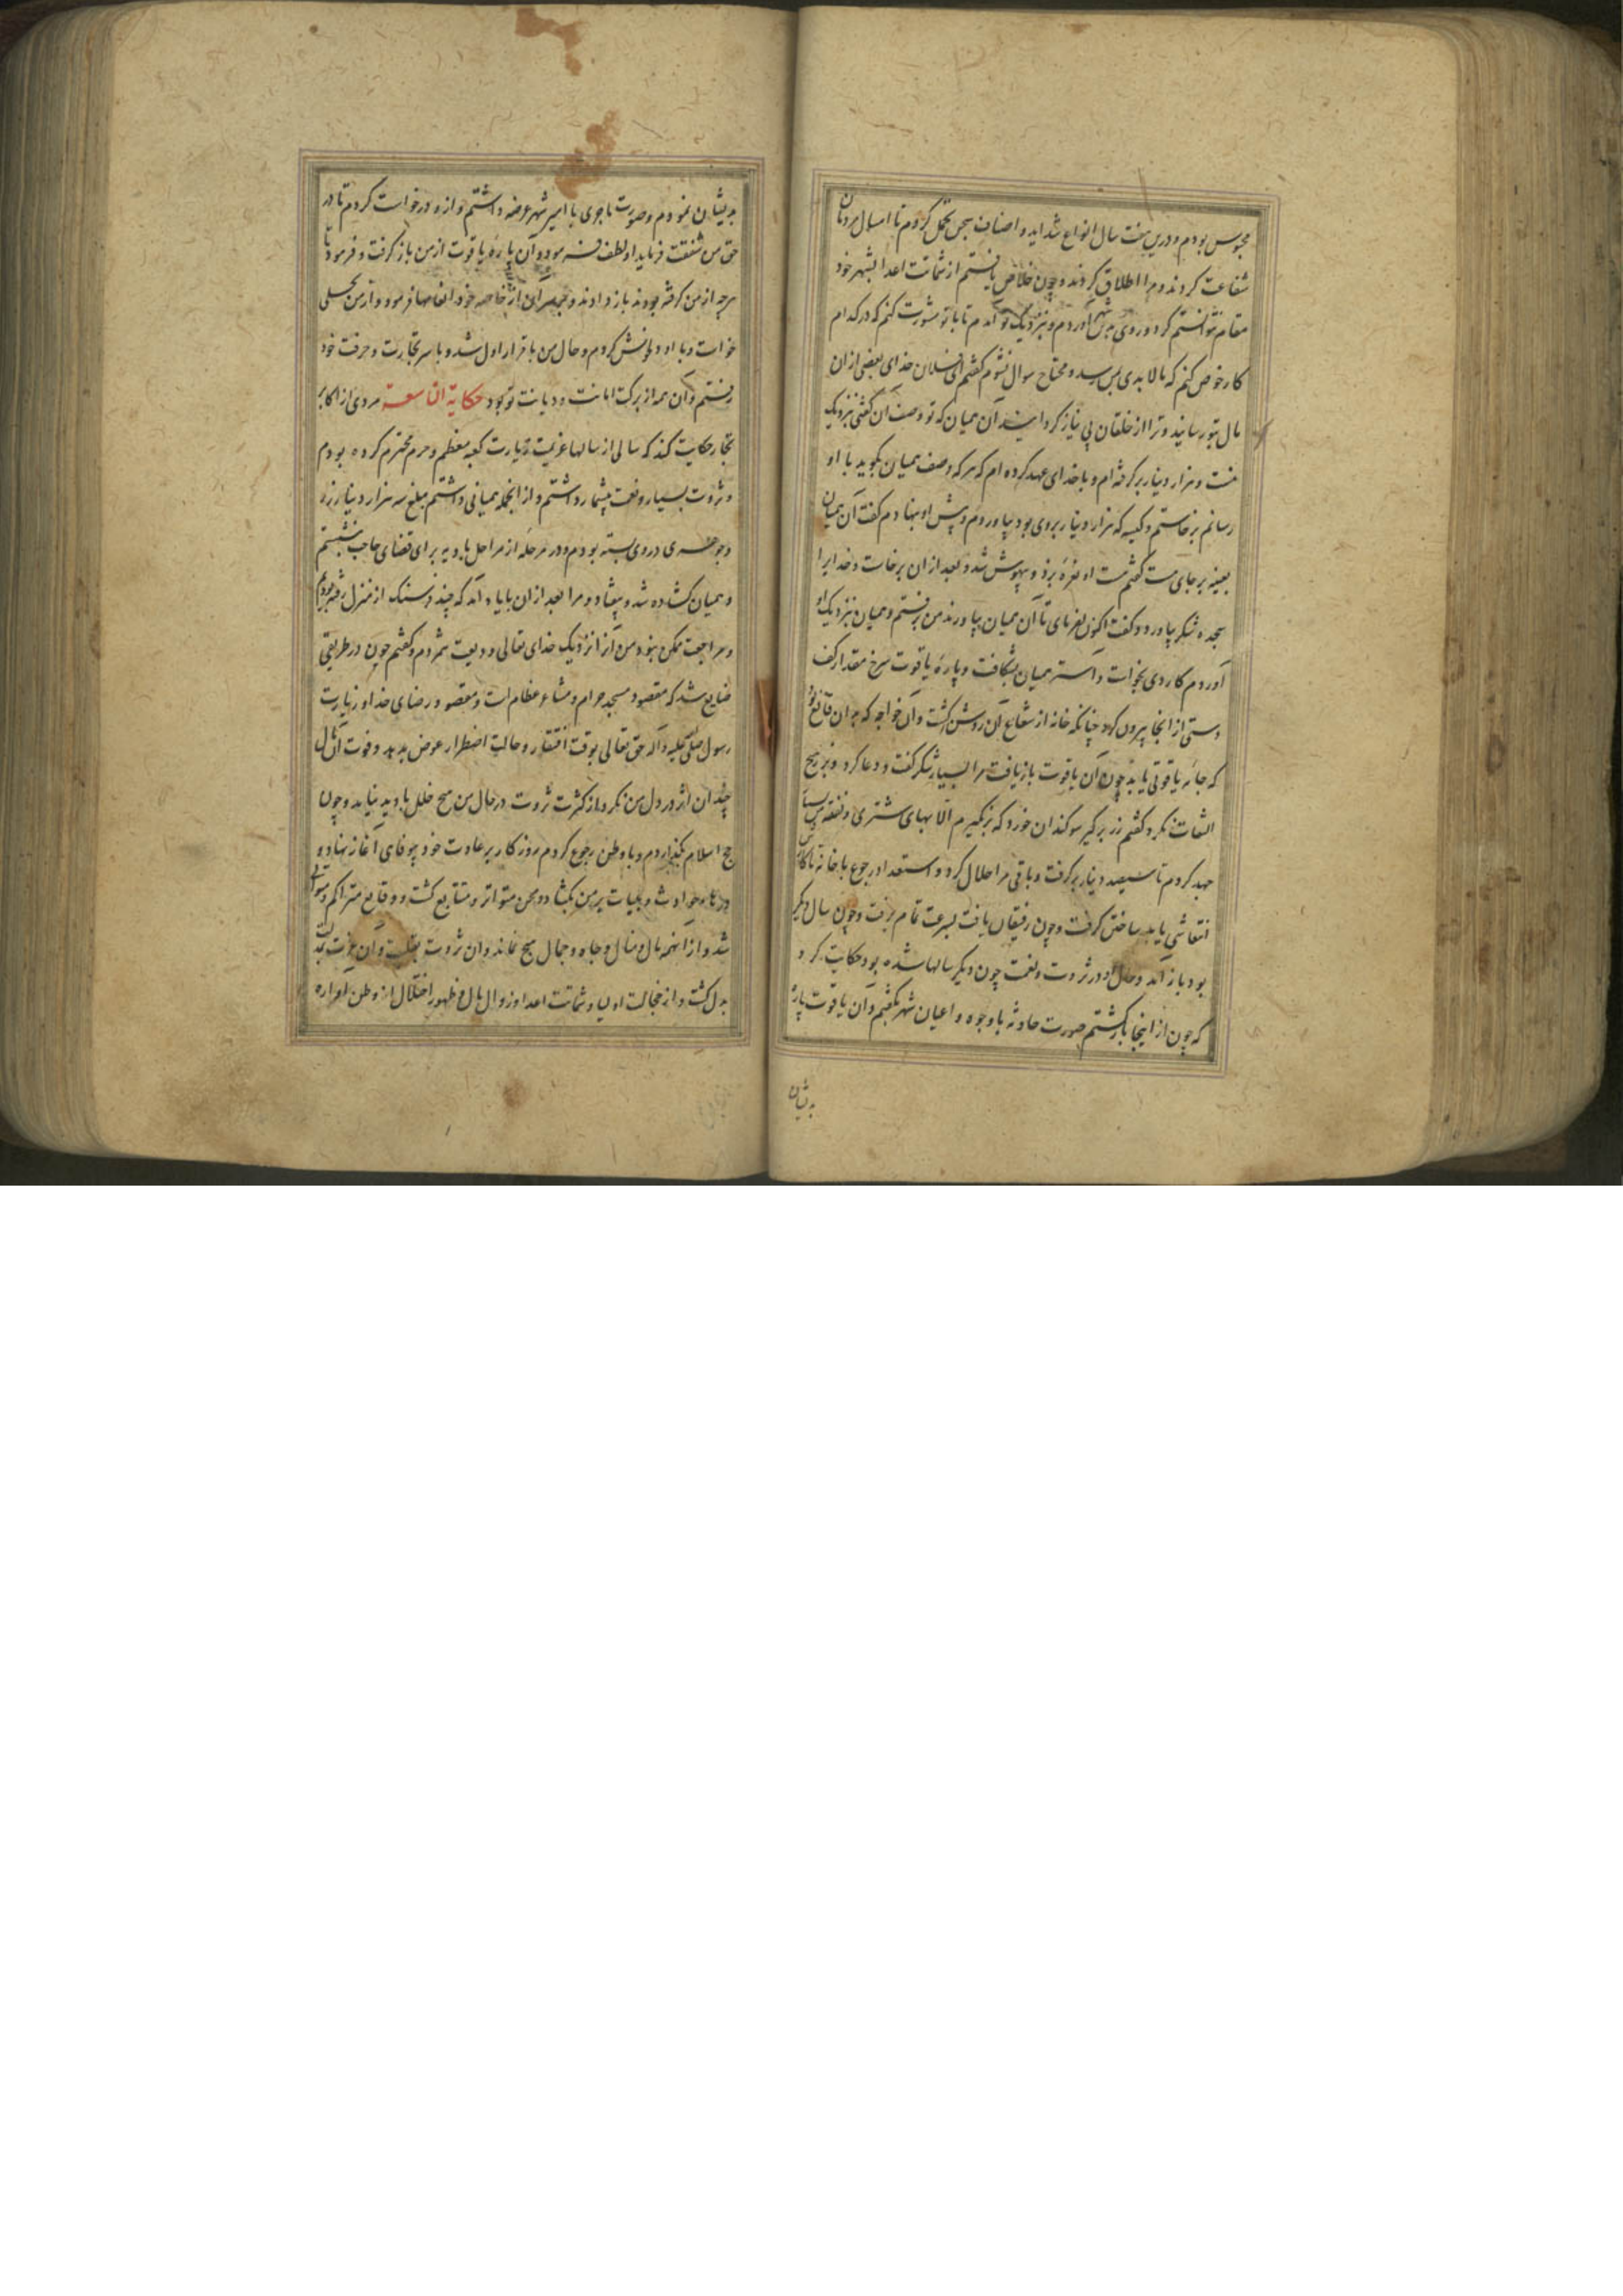 محبوس بودم و درین هفت سال انواع شداید و اصناف سجن تحمل کردم تا امسال مردمان
شفاعت کردند و مرا اطلاق کردند و چون خلاص یافتم از شماتت اعدا بشهر خود
مقام نتوانستم کرد و روی بدین شهر آوردم و بنزدیک تو آمدم تا با تو مشورت کنم که در کدام
کار خوض کنم که مالا بدی بمن رسد و محتاج سوال نشوم گفتم ای فلان خدای بعضی از ان
مال بتو رسانید و ترا از خلقان بی نیاز کردانید آن همیان که تو وصف آن گفتی بنزدیک
منست و هزار دینار بر گرفته ام و با خدای عهد کرده ام که هر که وصف همیان بگوید با او
رسانم برخاستم و کیسه که هزار دینار بر وی بود بیاوردم و پیش او بنهادم گفت آن همیان
بعینه بر جای هست گفتم هست او نعره بزد و بیهوش شد و بعد از ان برخاست و خدایرا
سجده شکر بیاورد و گفت اکنون بفرمای تا آن همیان بیاورند من برفتم و همیان بنزدیک او
آوردم کاردی بخواست و آستر همیان بشکافت و پاره یاقوت سرخ مقدار کف
دستی از انجا بیرون کرد چنانکه خانه از شعاع آن روشن گشت و آن خواجه که بدان قانع بود
که جامه یاقوتی یابد چون آن یاقوت بازیافت مرا بسیار شکر گفت و دعا کرد و بزر هیچ
التفات نکرد گفتم زر بر گیر سوکندان خورد که بر نگیرم الا بهای شتری و نفقه
جهد کردم تا سیصد دینار بر گرفت و باقی مرا حلال کرد و استعداد رجوع با خانه
انتعاشی یابد ساختن گرفت و چون رفیقان یافت بسرعت تمام برفت و چون سال دیگر
بود باز آمد و حال او در ثروت و نعمت چون دیگر سالها شده بود حکایت کرد
که چون از اینجا بازگشتم صورت حادثه با وجوه و اعیان شهر بگفتم و آن یاقوت پاره
بدیشان
بدیشان نمودم و صورت ماجری با امیر شهر عرضه داشتم و ازو درخواست کردم تا در
حق من شفقت فرماید او لطف فرمود و آن پاره یاقوت از من باز گرفت و فرمود تا
هرچه از من گرفته بودند باز دادند و از خاصه خود انعامها فرمود و از من بحلی
خواست و با او دل خوش کردم و حال من با قرار اول شد و با سر تجارت و حرفت خود
رفتم و آن همه از برکت امانت و دیانت تو بود حکایة التاسعة مردی از اکابر
تجار حکایت کند که سالی از سالها عزیمت زیارت کعبه معظم و حرم محترم کرده بودم
و ثروت بسیار و نعمت بیشمار داشتم و از انجمله همیانی داشتم مبلغ سه هزار دینار زر
و جوهری در وی بسته بودم و در مرحله از مراحل بادیه برای قضای حاجت بنشستم
و همیان کشاده شد و بیفتاد و مرا بعد از ان با یاد آمد که چند فرسنک از منزل رفته بودم
و مراجعت ممکن نبود من آنرا نزدیک خدای تعالی ودیعت شمردم و گفتم چون در طریقی
ضایع شد که مقصود مسجد حرام و مشاعر عظام است و مقصود رضای خدا و زیارت
رسول صلی علیه و آله حق تعالی بوقت افتقار و حالت اضطرار عوض بدهد و فوت آن مال
چندان اثر در دل من نکرد از کثرت ثروت در حال من هیچ خلل پادید نیامد و چون
حج اسلام بگذاردم و با وطن رجوع کردم روزکار بر عادت خود بیوفای آغاز نهاد و
درهاء حوادث و بلیات بر من بگشاد و محن متواتر و متتابع گشت و وقایع متراکم و متوالی
شد و از آنهمه مال و منال و جاه و جمال هیچ نماند و ان ثروت بقلت و آن عزت بمذلت
بدل گشت و از خجالت اولیا و شماتت اعدا و زوال مال و ظهور اختلال از وطن آواره